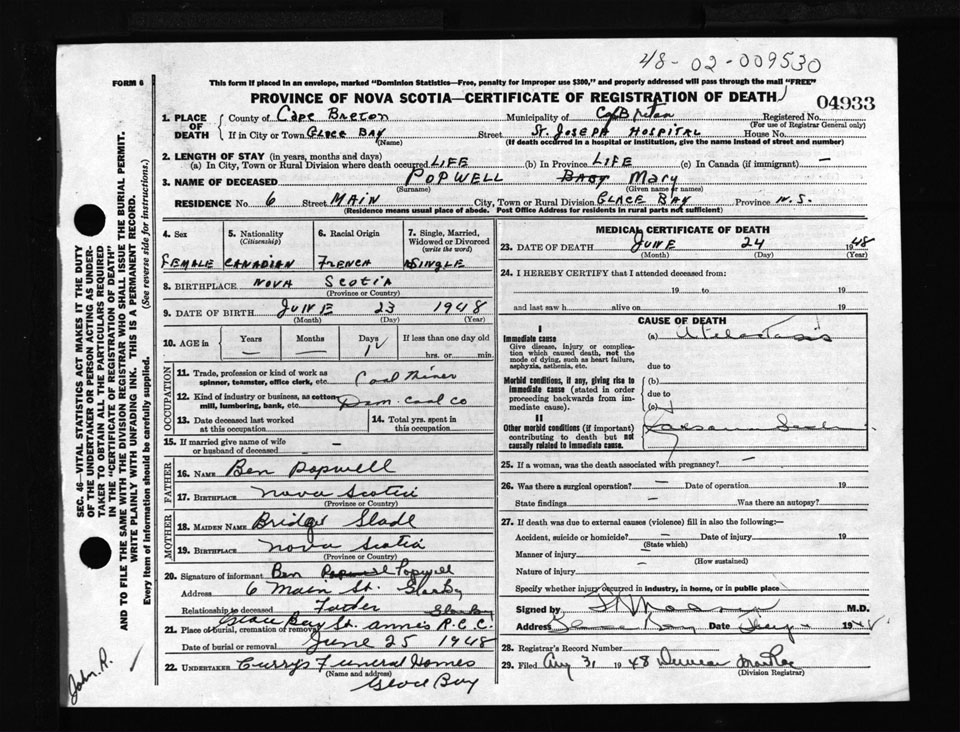 48-02-009530
FORM 6
This form if placed in an envelope, marked "Dominion Statistics—Free, penalty for improper use $300," and properly addressed will pass through the mail "FREE"
PROVINCE OF NOVA SCOTIA—CERTIFICATE OF REGISTRATION OF DEATH
04933
1. PLACE OF DEATH
County of Cape Breton Municipality of C Breton Registered No.
(For use of Registrar General only)
If in City or Town GLACE BAY Street ST. JOSEPH HOSPITAL House No.
(Name) (If death occurred in a hospital or institution, give the name instead of street and number)
2. LENGTH OF STAY (in years, months and days)
(a) In City, Town or Rural Division where death occurred LIFE (b) In Province LIFE (c) In Canada (if immigrant) —
3. NAME OF DECEASED POPWELL BABY MARY
(Surname) (Given name or names)
RESIDENCE No. 6 Street MAIN City, Town or Rural Division GLACE BAY Province N.S.
(Residence means usual place of abode. Post Office Address for residents in rural parts not sufficient)
4. Sex
5. Nationality (Citizenship)
6. Racial Origin
7. Single, Married, Widowed or Divorced (write the word)
FEMALE CANADIAN FRENCH SINGLE
8. BIRTHPLACE NOVA SCOTIA
(Province or Country)
9. DATE OF BIRTH JUNE 23 1948
(Month) (Day) (Year)
10. AGE in
Years Months Days If less than one day
— — hrs. or min.
OCCUPATION
11. Trade, profession or kind of work as spinner, teamster, office clerk, etc. Coal Miner
12. Kind of industry or business, as cotton mill, lumbering, bank, etc. Dom. Coal Co
13. Date deceased last worked at this occupation
14. Total yrs. spent in this occupation
15. If married give name of wife or husband of deceased —
FATHER
16. NAME Ben Popwell
17. BIRTHPLACE Nova Scotia
(Province or Country)
MOTHER
18. MAIDEN NAME Bridget Slade
19. BIRTHPLACE Nova Scotia
(Province or Country)
20. Signature of informant Ben Popwell Popwell
Address 6 Main St. Glace Bay
Relationship to deceased Father Glace Bay
21. Place of burial, cremation or removal Glace Bay St. Anne's R.C.C.
Date of burial or removal June 25 1948
22. UNDERTAKER Curry's Funeral Homes
(Name and address)
Glace Bay
MEDICAL CERTIFICATE OF DEATH
23. DATE OF DEATH JUNE 24 1948
(Month) (Day) (Year)
24. I HEREBY CERTIFY that I attended deceased from:
19 to 19
and last saw h alive on 19
CAUSE OF DEATH
I
Immediate cause
Give disease, injury or complication which caused death, not the mode of dying, such as heart failure, asphyxia, asthenia, etc.
(a) Atelectasis
due to
Morbid conditions, if any, giving rise to immediate cause (stated in order proceeding backwards from immediate cause).
(b)
due to
(c)
II
Other morbid conditions (if important) contributing to death but not causally related to immediate cause.
25. If a woman, was the death associated with pregnancy? —
26. Was there a surgical operation? — Date of operation 19
State findings — Was there an autopsy?
27. If death was due to external causes (violence) fill in also the following:—
Accident, suicide or homicide? — Date of injury 19
(State which)
Manner of injury —
(How sustained)
Nature of injury —
Specify whether injury occurred in industry, in home, or in public place
Signed by M.D.
Address Glace Bay Date 19
28. Registrar's Record Number
29. Filed Aug 31 1948 Duncan MacRae
(Division Registrar)
SEC. 46—VITAL STATISTICS ACT MAKES IT THE DUTY OF THE UNDERTAKER OR PERSON ACTING AS UNDERTAKER TO OBTAIN ALL THE PARTICULARS REQUIRED IN THE "CERTIFICATE OF REGISTRATION OF DEATH" AND TO FILE THE SAME WITH THE DIVISION REGISTRAR WHO SHALL ISSUE THE BURIAL PERMIT.
WRITE PLAINLY WITH UNFADING INK. THIS IS A PERMANENT RECORD.
Every item of information should be carefully supplied. (See reverse side for instructions.)
John. R.